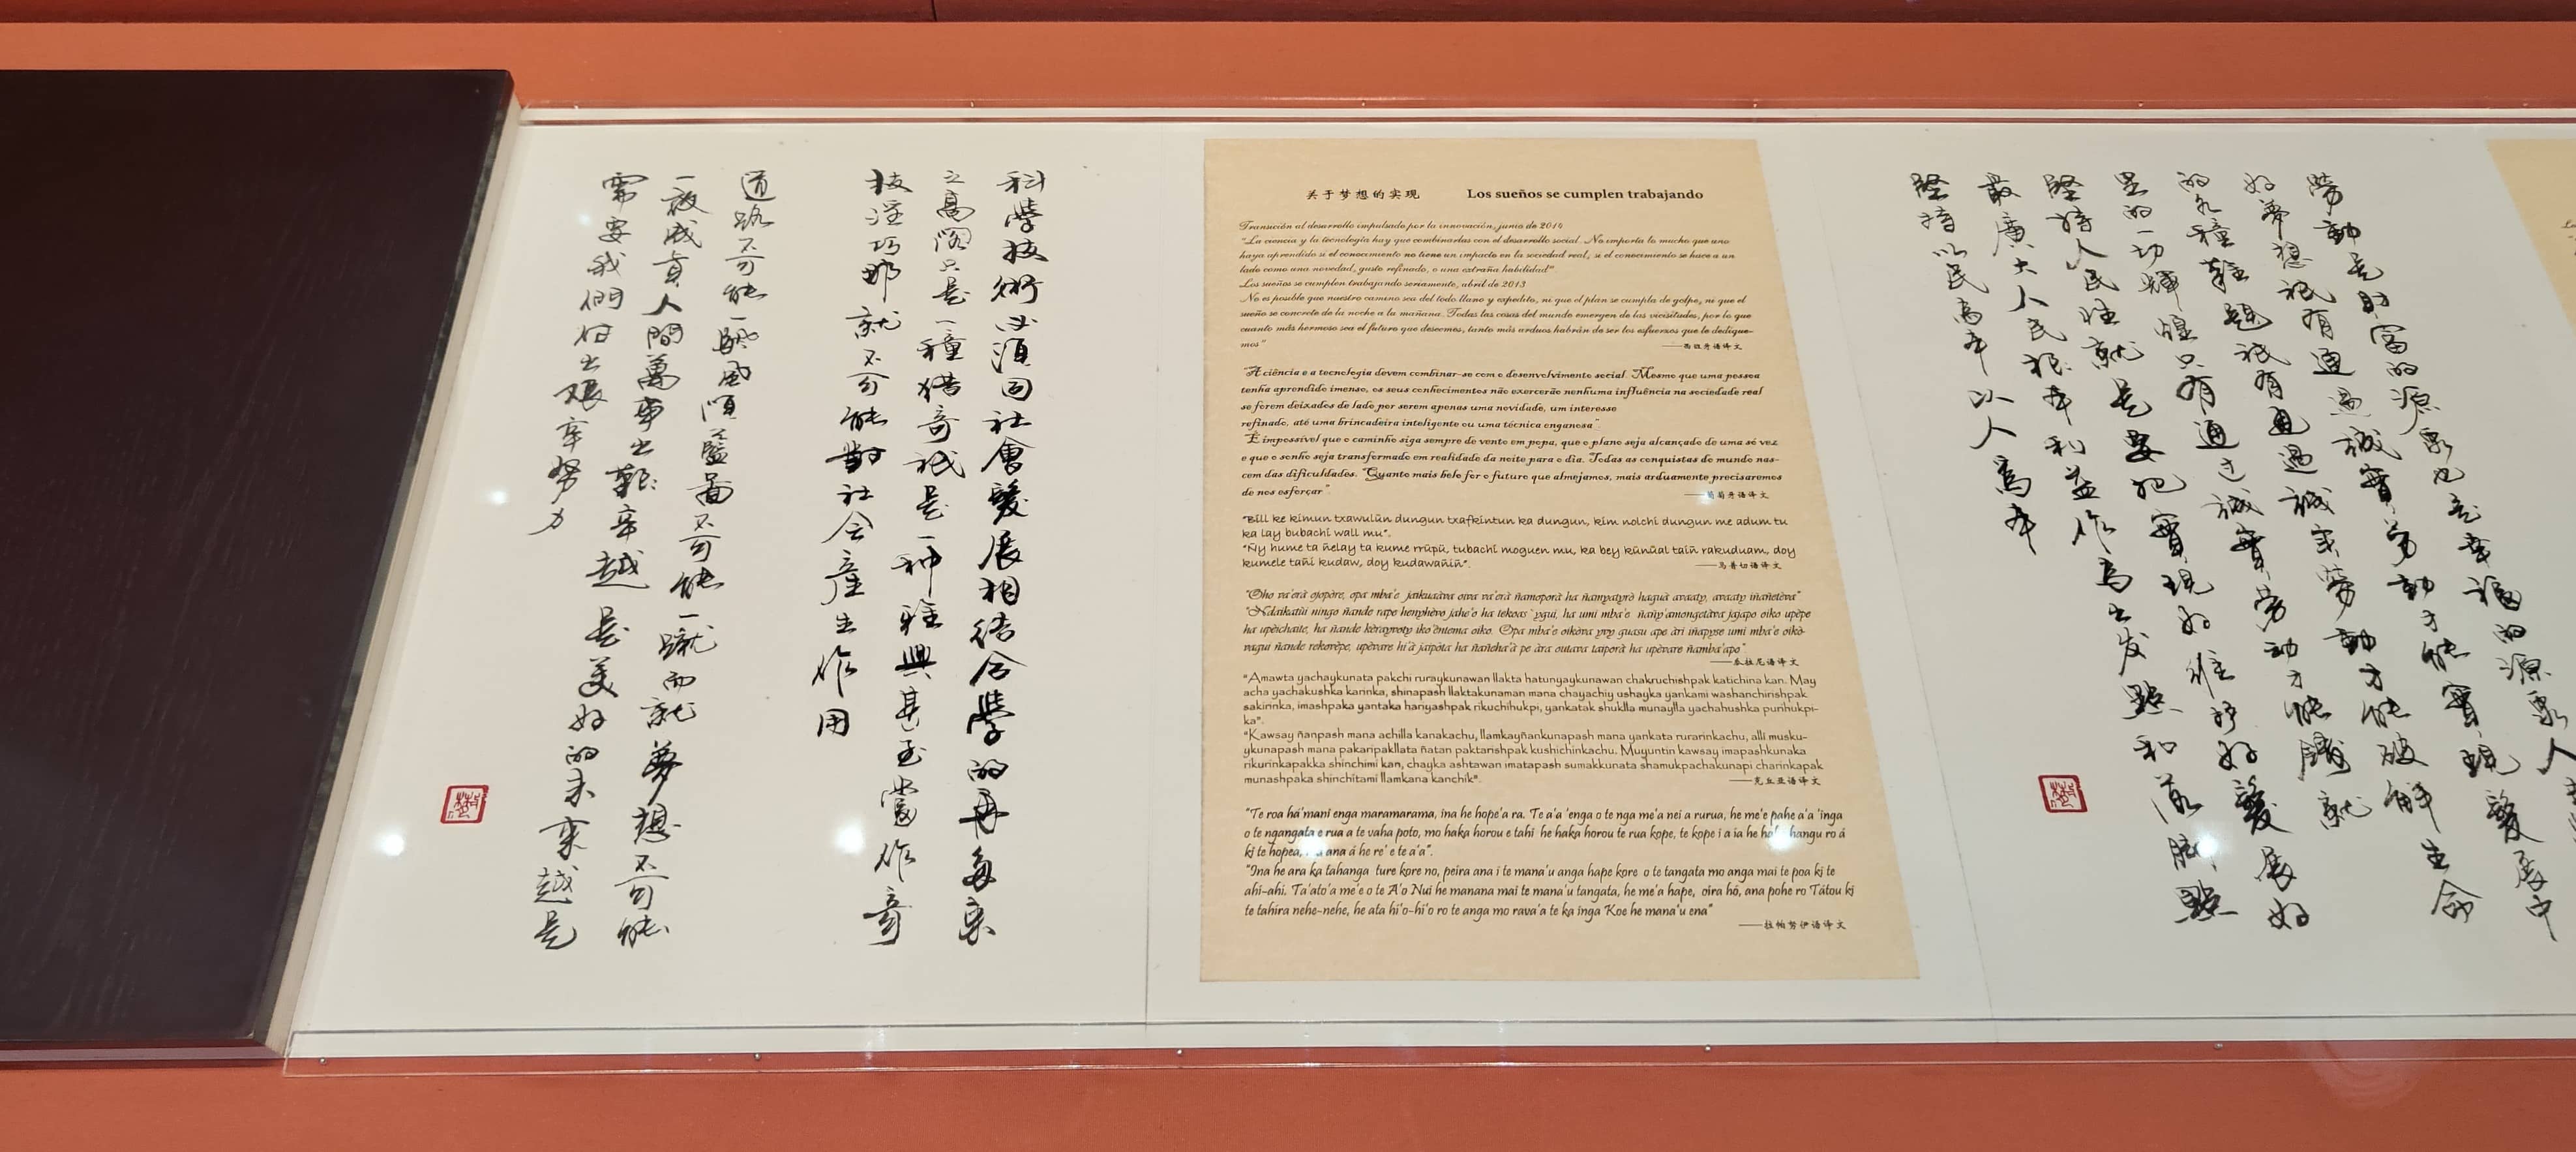 勞動是財富的源泉也是幸福的源泉人
好夢想祇有通過誠實勞動才能實現發展中
的各種難題祇有通過誠实勞動才能破解生命
里的一切輝煌只有通过誠實勞動才能鑄就
堅持人民性就是要把實現好維护好發展好
最廣大人民根本利益作為出发點和落腳點
堅持以民為本以人為本
关于梦想的实现 Los sueños se cumplen trabajando
Transición al desarrollo impulsado por la innovación, junio de 2014
"La ciencia y la tecnología hay que combinarlas con el desarrollo social. No importa lo mucho que uno
haya aprendido si el conocimiento no tiene un impacto en la sociedad real, si el conocimiento se hace a un
lado como una novedad, gusto refinado, o una extraña habilidad".
Los sueños se cumplen trabajando seriamente, abril de 2013
No es posible que nuestro camino sea del todo llano y expedito, ni que el plan se cumpla de golpe, ni que el
sueño se concrete de la noche a la mañana. Todas las cosas del mundo emergen de las vicisitudes, por lo que
cuanto más hermoso sea el futuro que deseemos, tanto más arduos habrán de ser los esfuerzos que le dedique-
mos"
——西班牙语译文
"A ciência e a tecnologia devem combinar-se com o desenvolvimento social. Mesmo que uma pessoa
tenha aprendido imenso, os seus conhecimentos não exercerão nenhuma influência na sociedade real
se forem deixados de lado por serem apenas uma novidade, um interesse
refinado, até uma brincadeira inteligente ou uma técnica enganosa"
"É impossível que o caminho siga sempre de vento em popa, que o plano seja alcançado de uma só vez
e que o sonho seja transformado em realidade da noite para o dia. Todas as conquistas do mundo nas-
cem das dificuldades. Quanto mais belo for o futuro que almejamos, mais arduamente precisaremos
de nos esforçar".
——葡萄牙语译文
"Bill ke kimun txawulün dungun txafkintun ka dungun, kim nolchi dungun me adum tu
ka lay bubachi wall mu".
"Ñy hume ta ñelay ta kume rrüpü, tubachi moguen mu, ka bey künüal taiñ rakuduam, doy
kumele tañi kudaw, doy kudawañiñ".
——马普切语译文
"Oho va'erã ojopóre, opa mba'e jaikuaáva oiva va'erã ñamoporã ha ñamyatyrõ haguã avaaty, avaaty iñañetéva"
"Ndaikatúi ningo ñande rape henyhẽvo jahe'o ha tekoas`ygui, ha umi mba'e ñañy'amongetáva jajapo oiko upépe
ha upéichaite, ha ñande kérayvoty iko'ẽntema oiko. Opa mba'e oikóva yvy guasu ape ári iñapyse umi mba'e oikó-
vagui ñande rekovépe, upévare hi'ã jaipóta ha ñañeha'ã pe ára outava taiporã ha upévare ñamba'apo"
——瓜拉尼语译文
"Amawta yachaykunata pakchi ruraykunawan llakta hatunyaykunawan chakruchishpak katichina kan. May
acha yachakushka karinka, shinapash llaktakunaman mana chayachiy ushayka yankami washanchirishpak
sakirinka, imashpaka yantaka hariyashpak rikuchihukpi, yankatak shuklla munaylla yachahushka purihukpi-
ka".
"Kawsay ñanpash mana achilla kanakachu, llamkayñankunapash mana yankata rurarinkachu, alli musku-
ykunapash mana pakaripakllata ñatan paktarishpak kushichinkachu. Muyuntin kawsay imapashkunaka
rikurinkapakka shinchimi kan, chayka ashtawan imatapash sumakkunata shamukpachakunapi charinkapak
munashpaka shinchitami llamkana kanchik".
——克丘亚语译文
"Te roa há'mani enga maramarama, ina he hope'a ra. Te a'a 'enga o te nga me'a nei a rurua, he me'e pahe a'a 'inga
o te ngangata e rua a te vaha poto, mo haka horou e tahi he haka horou te rua kope, te kope i a ia he hangu ro á
ki te hopea, ana á he re' e te a'a".
"Ina he ara ka tahanga ture kore no, peira ana i te mana'u anga hape kore o te tangata mo anga mai te poa ki te
ahi-ahi. Ta'ato'a me'e o te A'o Nui he manana mai te mana'u tangata, he me'a hape, oira hó, ana pohe ro Tátou ki
te tahira nehe-nehe, he ata hi'o-hi'o ro te anga mo rava'a te ka inga 'Koe he mana'u ena"
——拉帕努伊语译文
科學技術必須同社會發展相結合學的再多束
之高閣只是一種猎奇祇是一种雅興甚至當作奇
技淫巧那就不可能對社会產生作用
道路不可能一帆風順藍圖不可能一蹴而就夢想不可能
一夜成真人間萬事出艱辛越是美好的未來越是
需要我們付出艱辛努力